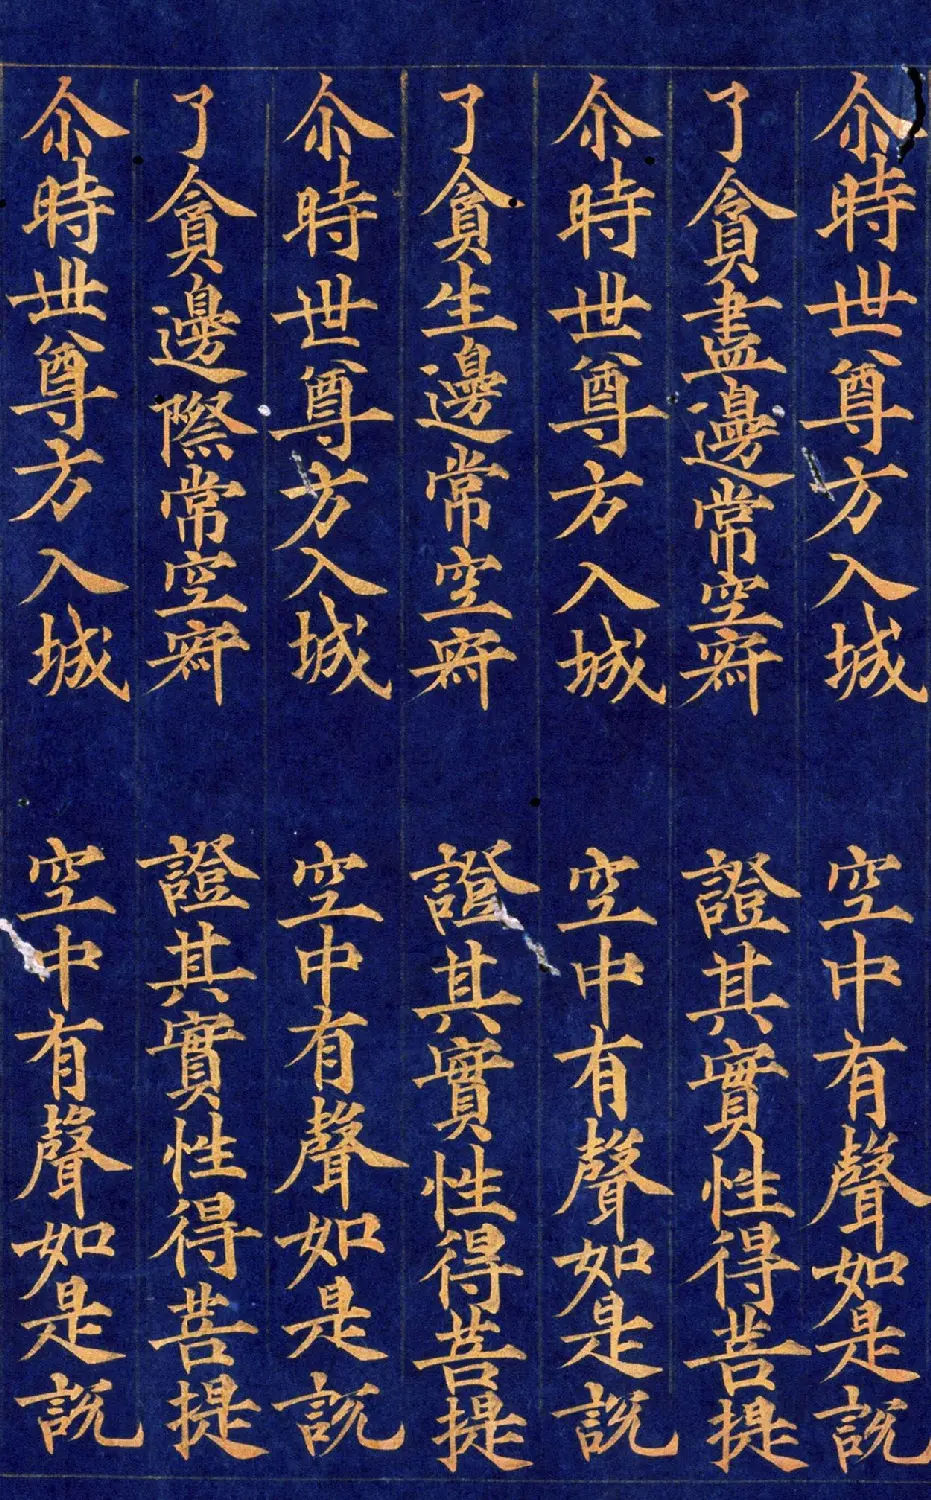 尒時世尊方入城　空中有聲如是説
了貪盡邊常空寂　證其實性得菩提
尒時世尊方入城　空中有聲如是説
了貪生邊常空寂　證其實性得菩提
尒時世尊方入城　空中有聲如是説
了貪邊際常空寂　證其實性得菩提
尒時世尊方入城　空中有聲如是説